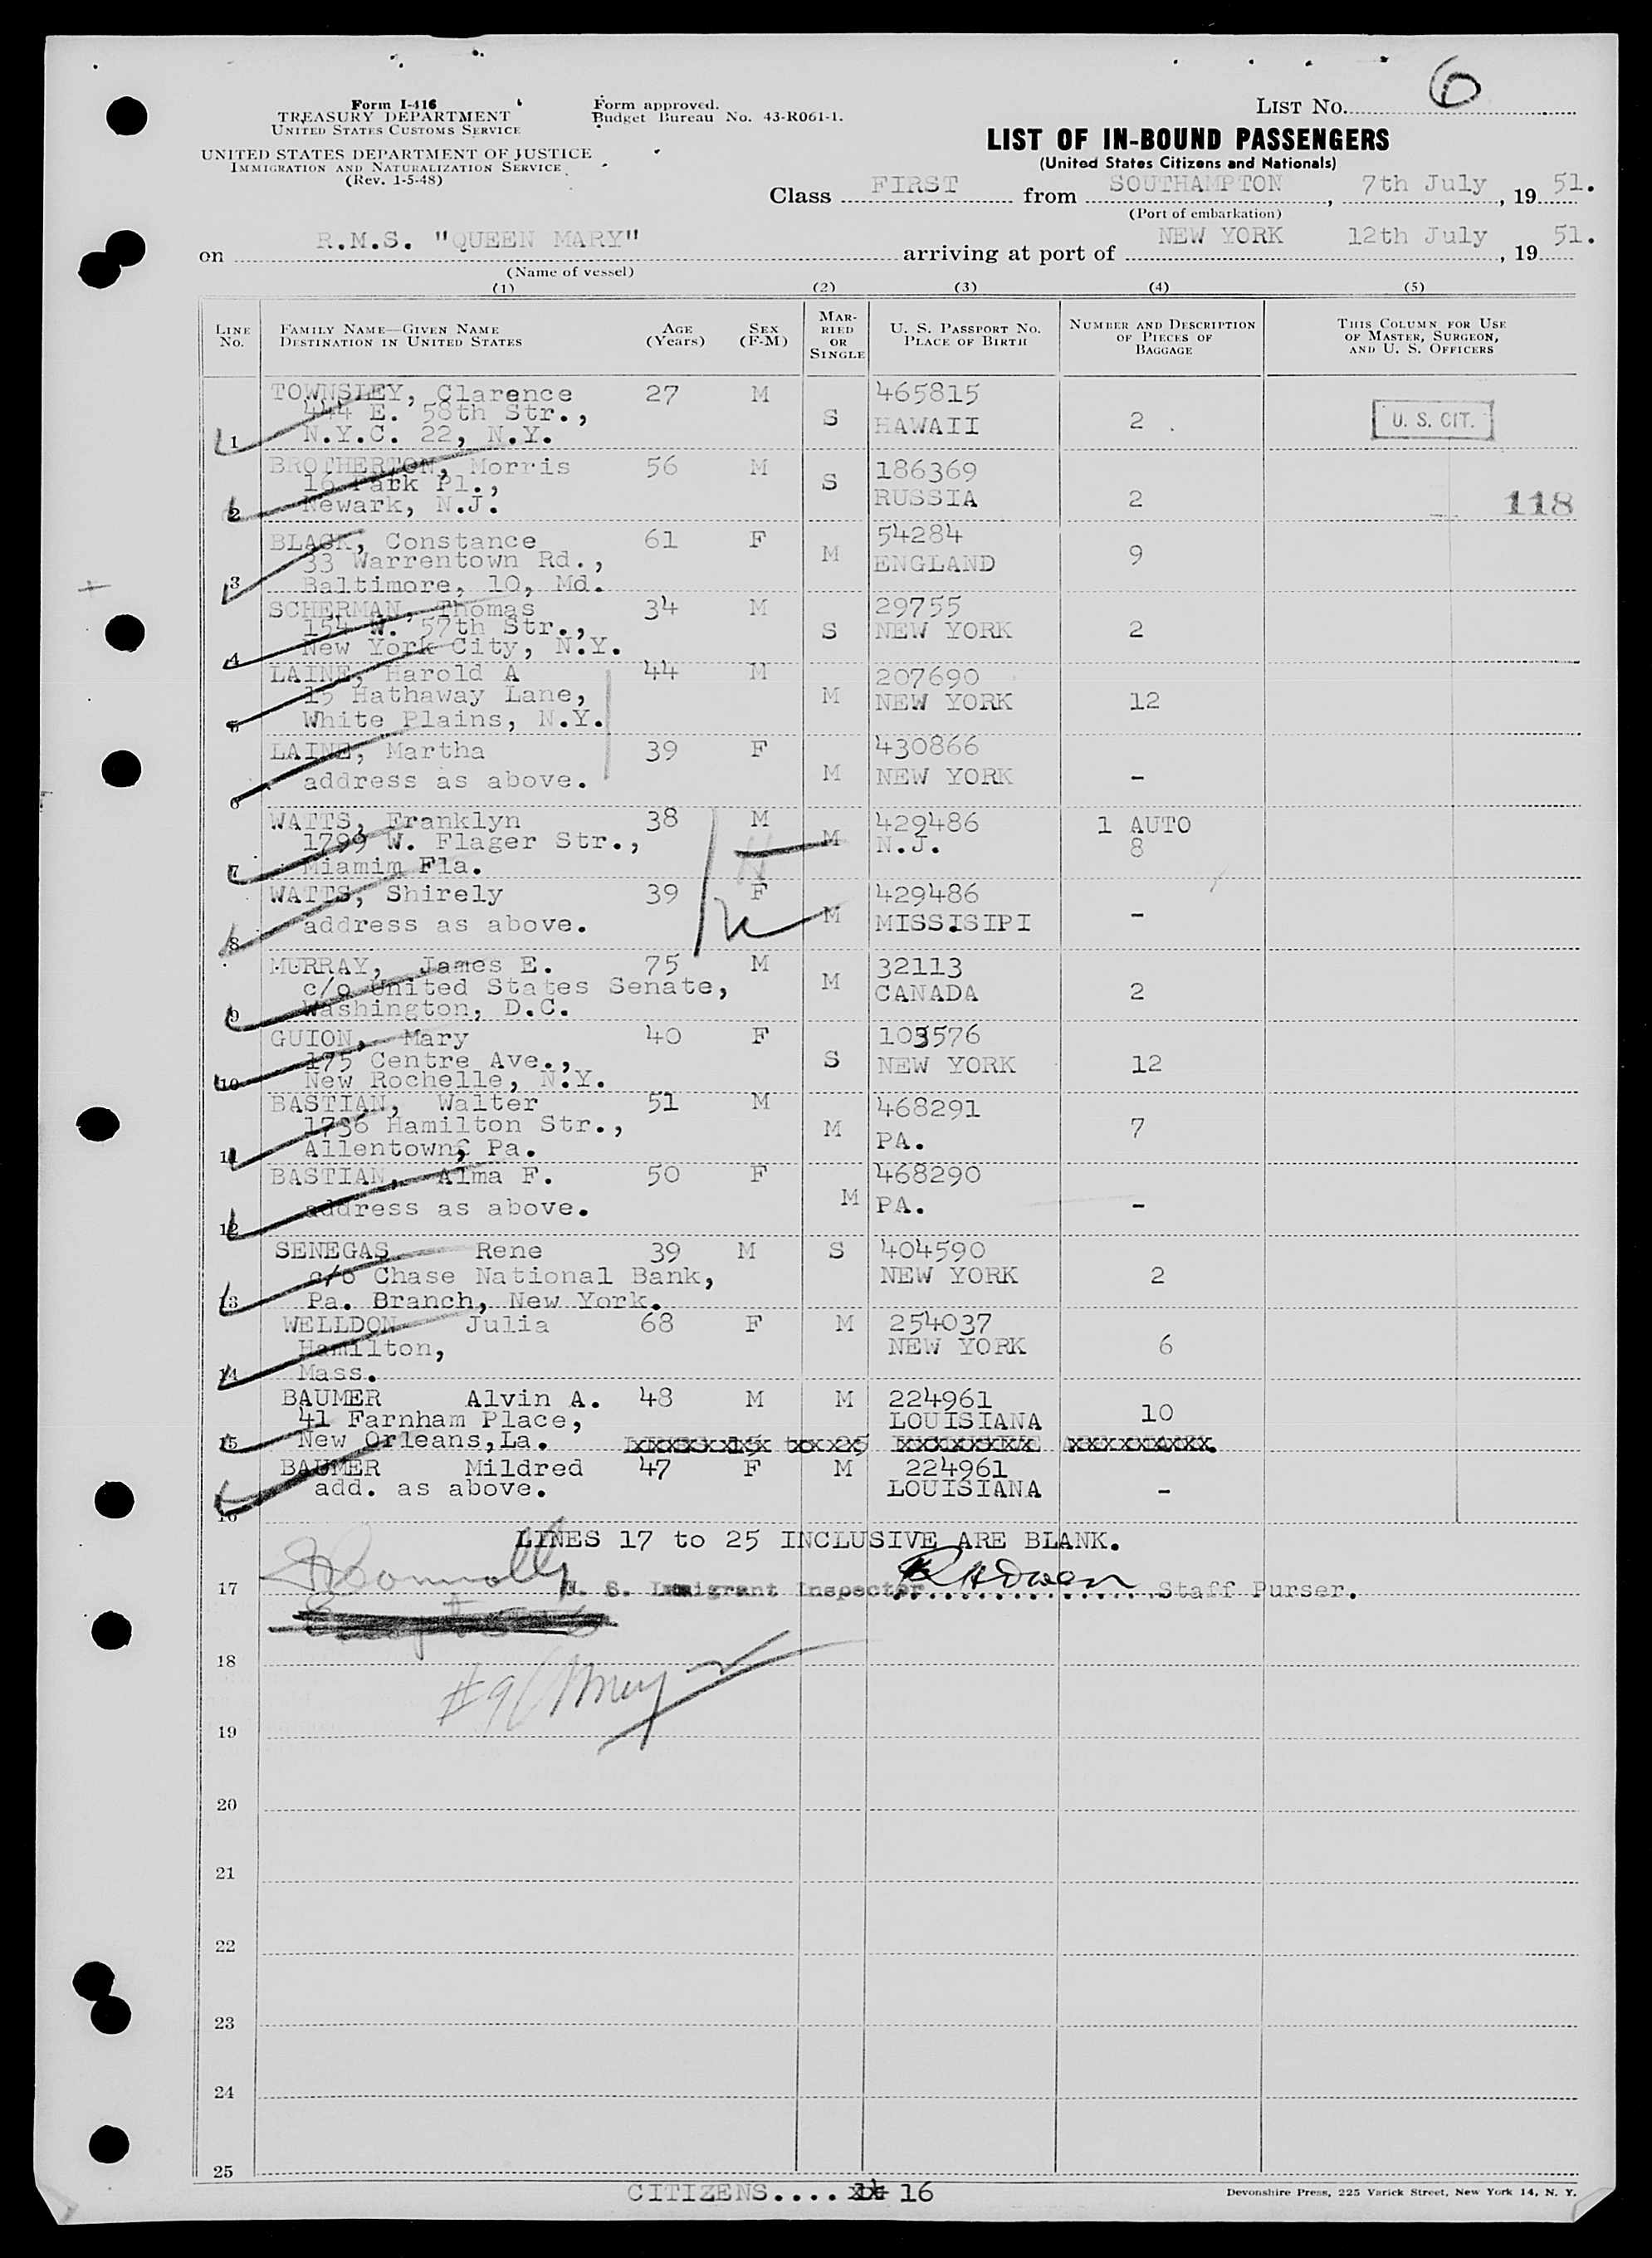 Form I-416
TREASURY DEPARTMENT
UNITED STATES CUSTOMS SERVICE
UNITED STATES DEPARTMENT OF JUSTICE
IMMIGRATION AND NATURALIZATION SERVICE
(Rev. 1-5-48)
Form approved.
Budget Bureau No. 43-R061-1.
LIST NO. 6
LIST OF IN-BOUND PASSENGERS
(United States Citizens and Nationals)
Class FIRST from SOUTHAMPTON, 7th July, 19 51.
(Port of embarkation)
on R.M.S. "QUEEN MARY" arriving at port of NEW YORK 12th July, 19 51.
(Name of vessel)
(1) (2) (3) (4) (5)
LINE NO. FAMILY NAME—GIVEN NAME DESTINATION IN UNITED STATES AGE (YEARS) SEX (F-M) MARRIED OR SINGLE U. S. PASSPORT NO. PLACE OF BIRTH NUMBER AND DESCRIPTION OF PIECES OF BAGGAGE THIS COLUMN FOR USE OF MASTER, SURGEON, AND U. S. OFFICERS
TOWNSLEY, Clarence 27 M 465815
444 E. 58th Str., S HAWAII 2 U. S. CIT.
1 N.Y.C. 22, N.Y.
BROTHERTON, Morris 56 M 186369
16 Park Pl., S RUSSIA 2 118
2 Newark, N.J.
BLACK, Constance 61 F 54284
33 Warrentown Rd., M ENGLAND 9
3 Baltimore, 10, Md.
SCHERMAN, Thomas 34 M 29755
154 W. 57th Str., S NEW YORK 2
4 New York City, N.Y.
LAINE, Harold A 44 M 207690
15 Hathaway Lane, M NEW YORK 12
5 White Plains, N.Y.
LAINE, Martha 39 F 430866
6 address as above. M NEW YORK -
WATTS, Franklyn 38 M 429486 1 AUTO
1799 W. Flager Str., M N.J. 8
7 Miamim Fla.
WATTS, Shirely 39 F 429486
8 address as above. M MISSISIPI -
MURRAY, James E. 75 M 32113
c/o United States Senate, M CANADA 2
9 Washington, D.C.
GUION, Mary 40 F 103576
175 Centre Ave., S NEW YORK 12
10 New Rochelle, N.Y.
BASTIAN, Walter 51 M 468291
1736 Hamilton Str., M PA. 7
11 Allentown, Pa.
BASTIAN, Alma F. 50 F 468290
12 address as above. M PA. -
SENEGAS Rene 39 M S 404590
c/o Chase National Bank, NEW YORK 2
13 Pa. Branch, New York.
WELLDON Julia 68 F M 254037
Hamilton, NEW YORK 6
14 Mass.
BAUMER Alvin A. 48 M M 224961
41 Farnham Place, LOUISIANA 10
15 New Orleans, La.
BAUMER Mildred 47 F M 224961
add. as above. LOUISIANA -
16
LINES 17 to 25 INCLUSIVE ARE BLANK.
17 U. S. Immigrant Inspector Staff Purser.
18
19
20
21
22
23
24
25
CITIZENS.... 16
Devonshire Press, 225 Varick Street, New York 14, N. Y.